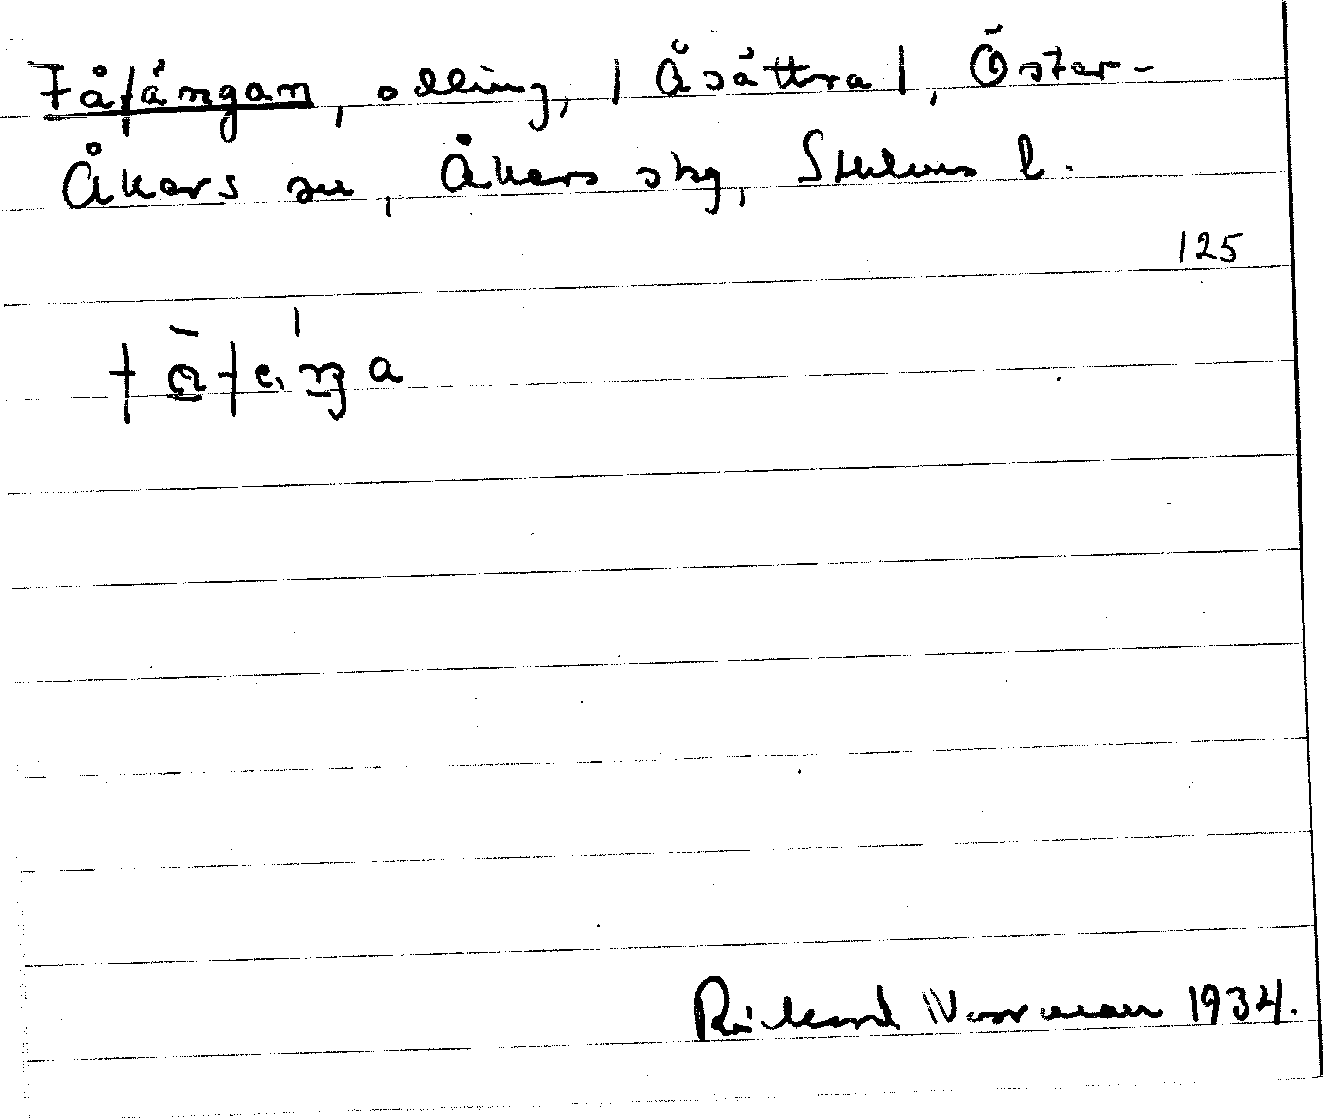 Fåfängan, odling, | Åsättra |, Öster-
Åkers sn, Åkers skg, Sthlms l.
125
Rickard Norrman 1934.